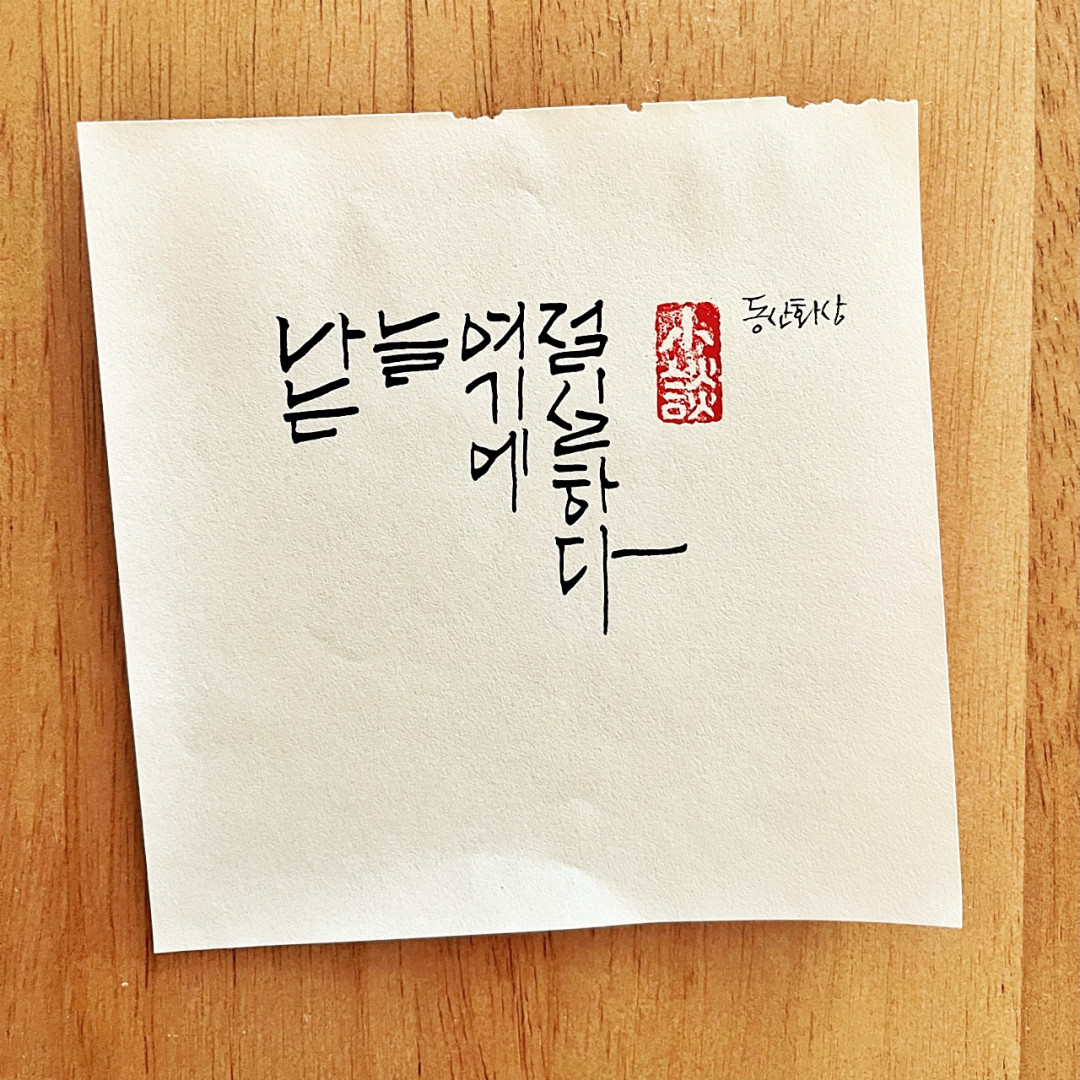 나는
늘
여기에
절실하다
小談
동산화상